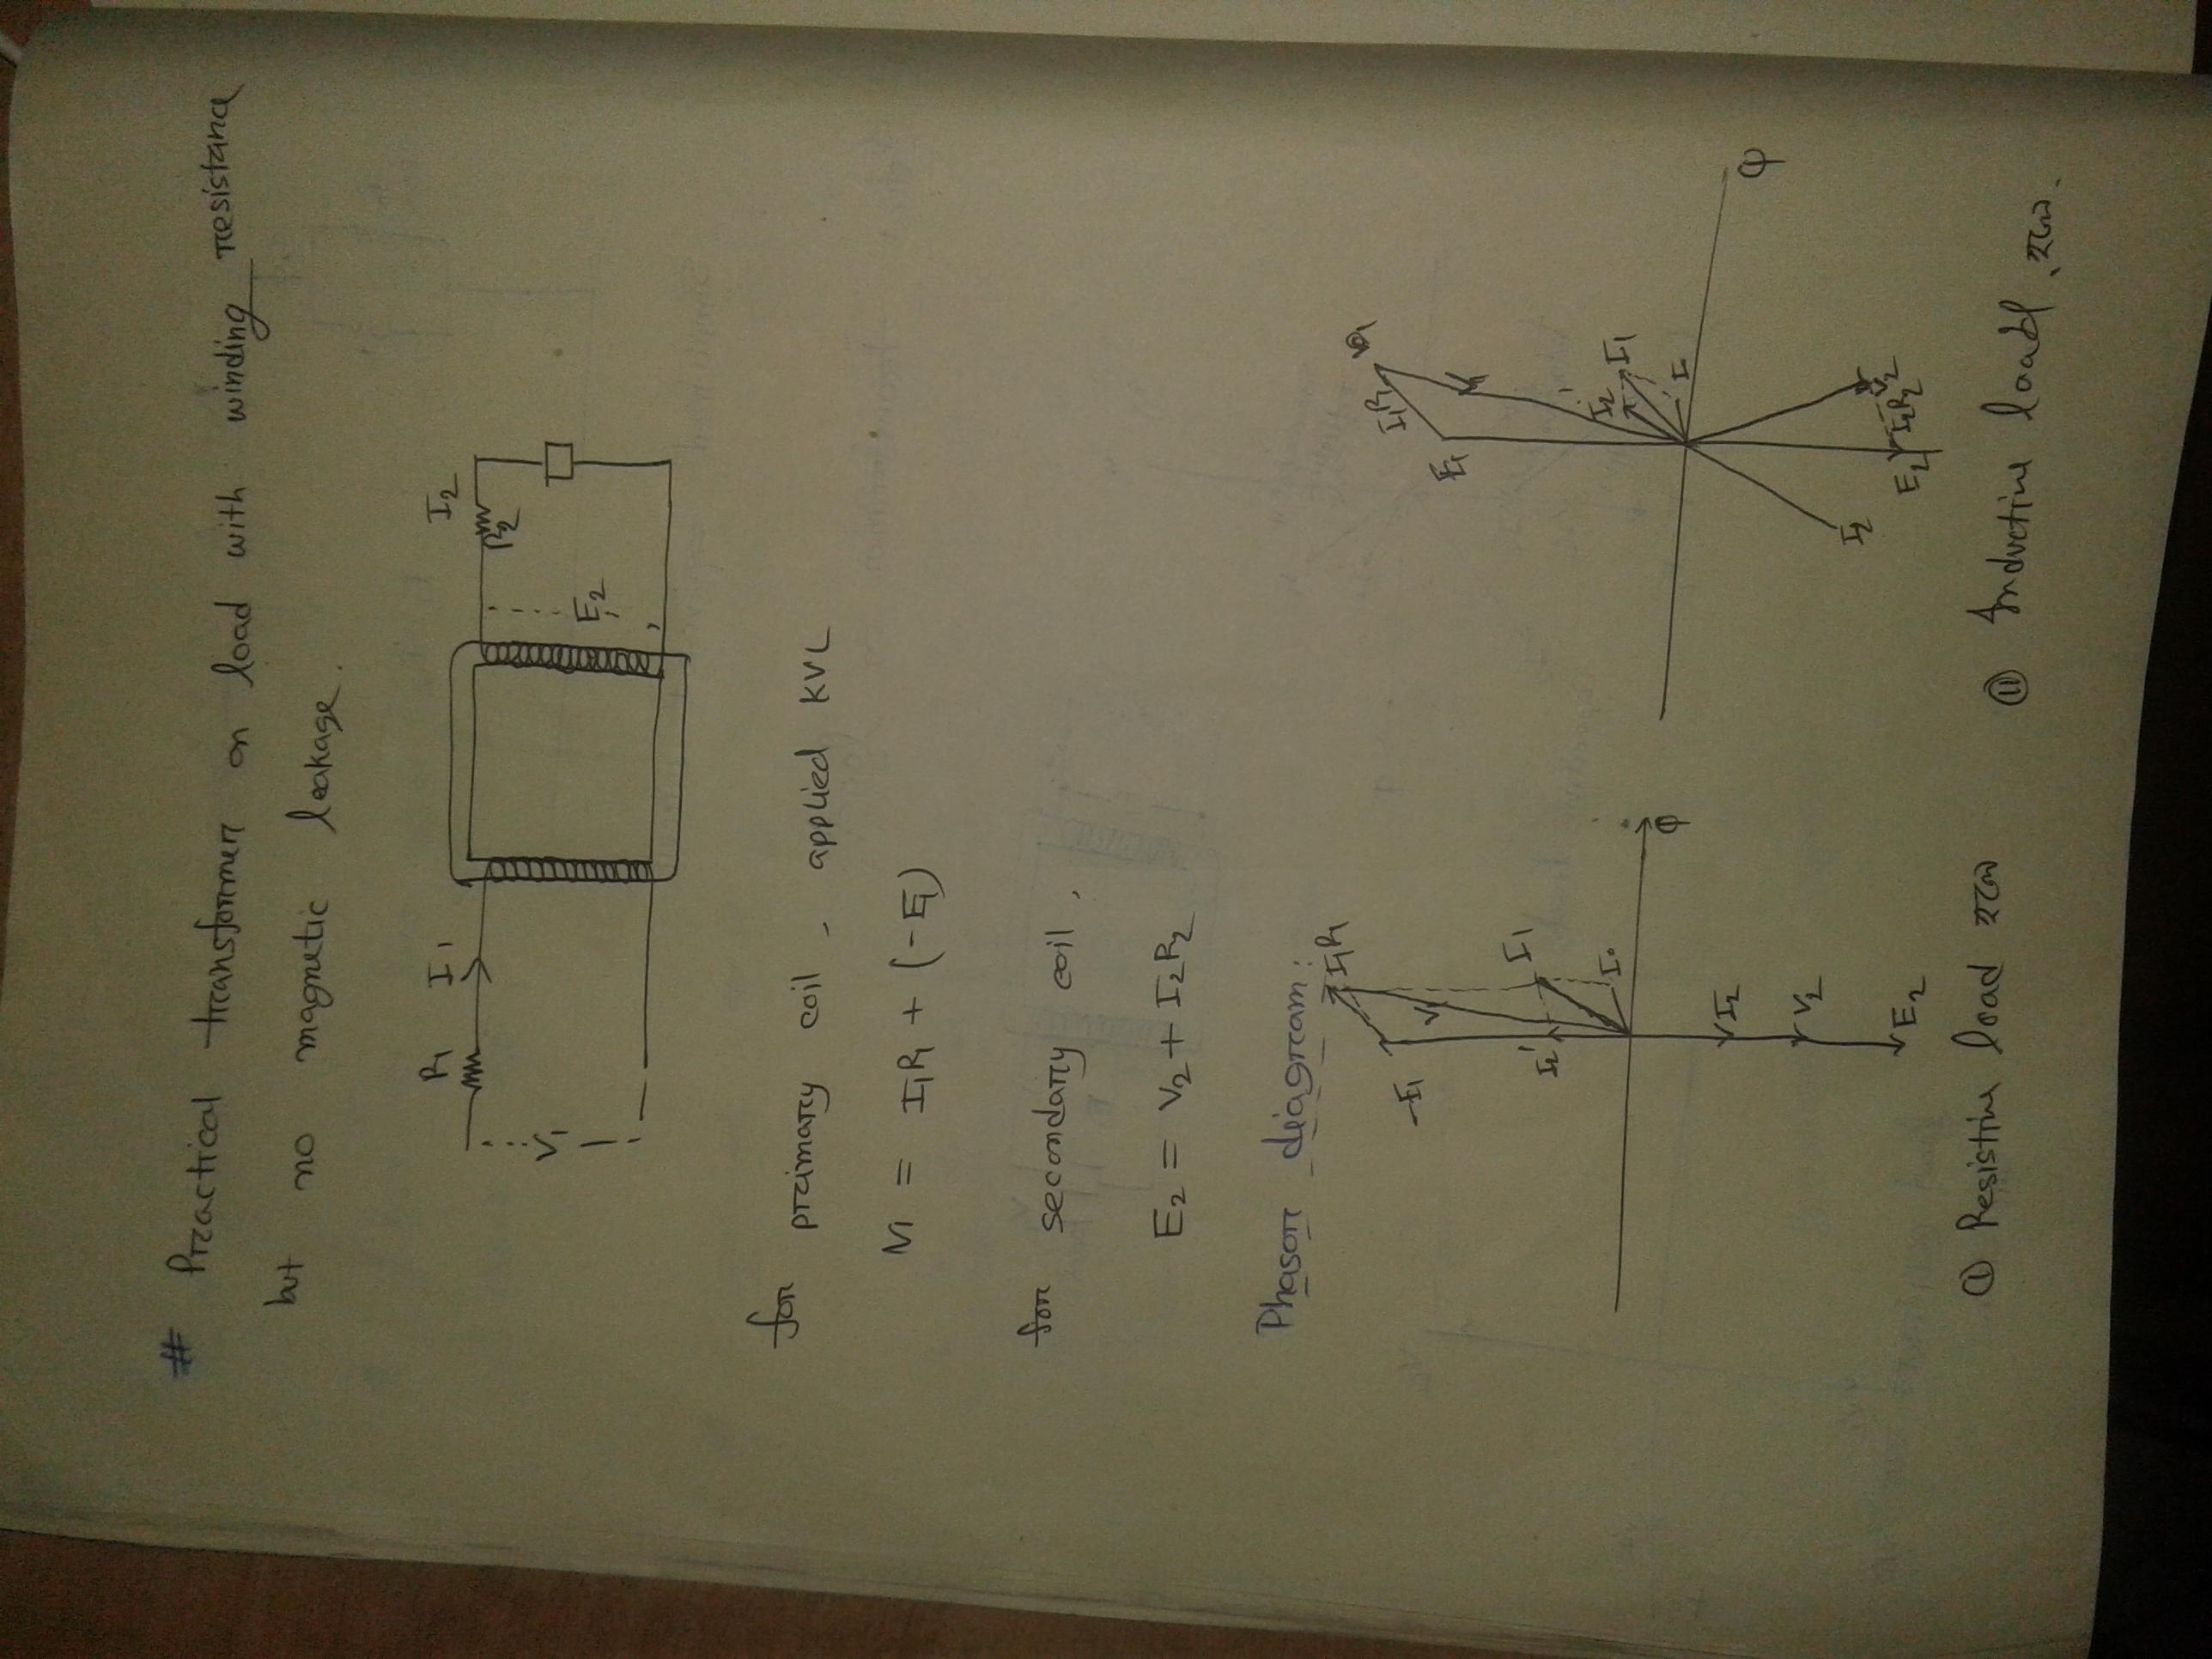 # Practical transformer on load with winding resistance
but no magnetic leakage.
R₁ I₁ I₂
R₂
V₁
E₂
for primary coil, applied KVL
V₁ = I₁R₁ + (-E₁)
for secondary coil,
E₂ = V₂ + I₂R₂
Phasor diagram:
I₁R₁
-E₁
V₁
I₁
I₂'
I₀
Φ
I₂
V₂
E₂
① Resistive load হলে
V₁
I₁R₁
E₁
I₂'
I₁
I
Φ
I₂
V₂
E₂ I₂R₂
② Inductive load হলে.